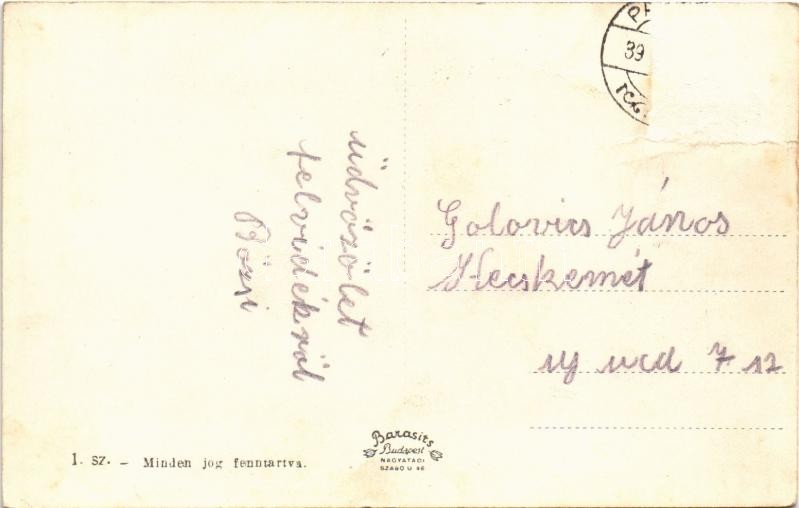 üdvözölet
felvidékről
Bözsi
Golovics János
Kecskemét
uj ucd 7 sz
39
1. sz. – Minden jog fenntartva.
Barasits
Budapest
NAGYATÁDI
SZABÓ U 46